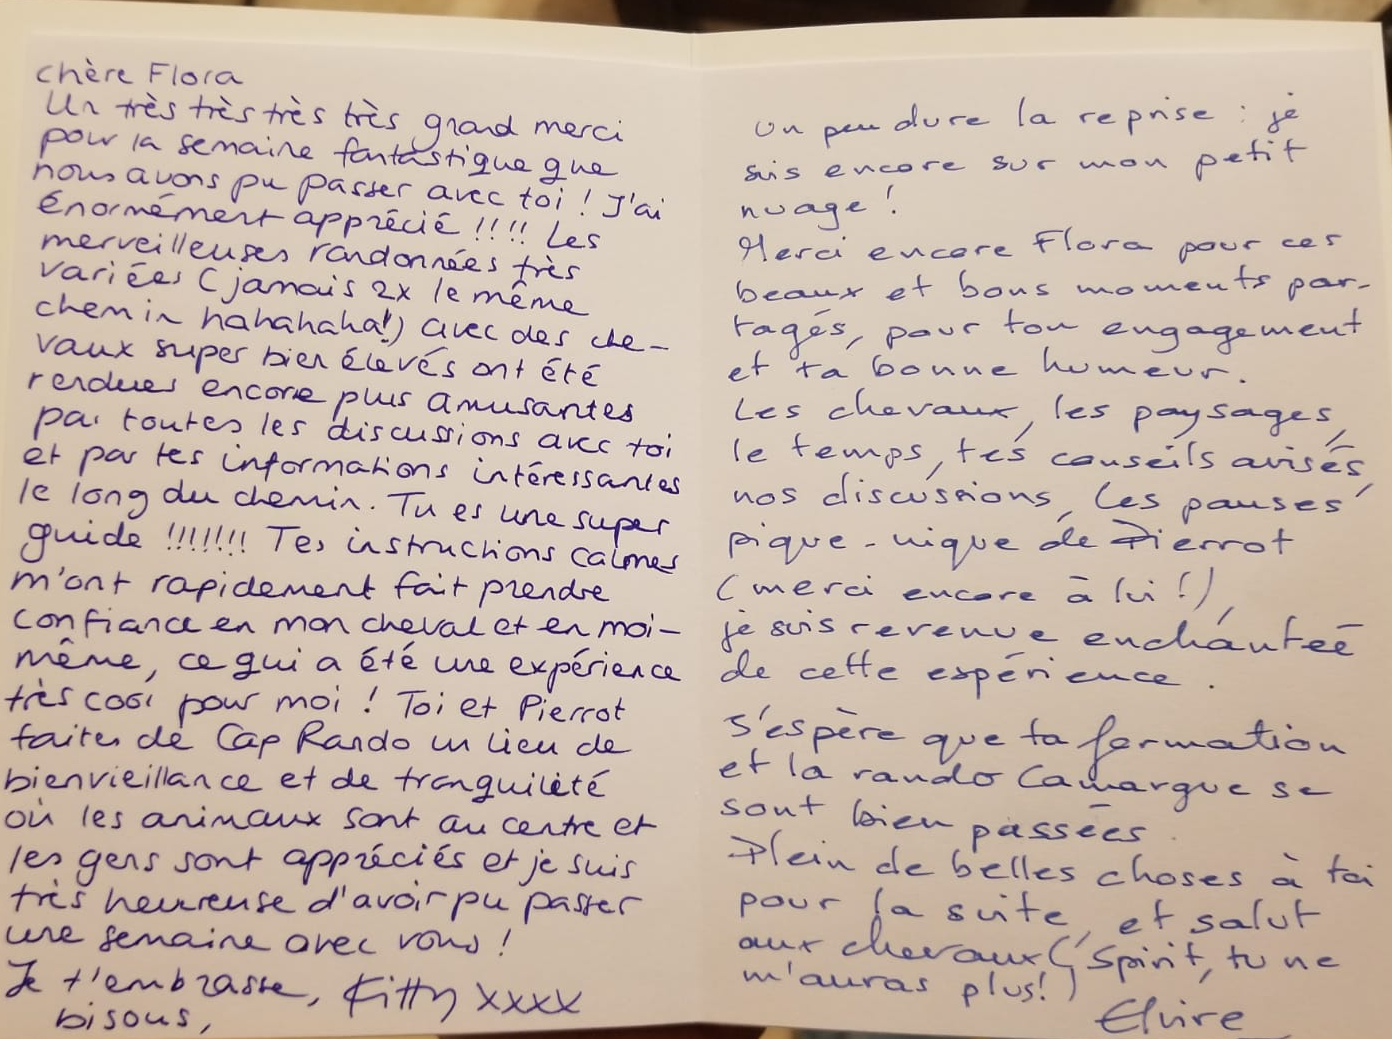 chère Flora
Un très très très très grand merci
pour la semaine fantastique que
nous avons pu passer avec toi ! J'ai
Énormément apprécié !!!! Les
merveilleuses randonnées très
variées (jamais 2x le même
chemin hahahaha!) avec des che-
vaux super bien élevés ont été
rendues encore plus amusantes
par toutes les discussions avec toi
et par tes informations intéressantes
le long du chemin. Tu es une super
guide !!!!!!! Tes instructions calmes
m'ont rapidement fait prendre
confiance en mon cheval et en moi-
même, ce qui a été une expérience
très cool pour moi ! Toi et Pierrot
faites de Cap Rando un lieu de
bienvieillance et de tranquilité
où les animaux sont au centre et
les gens sont appréciés et je suis
très heureuse d'avoir pu passer
une semaine avec vous !
Je t'embrasse, Kitty xxxx
bisous,
Un peu dure la reprise : je
suis encore sur mon petit
nuage !
Merci encore Flora pour ces
beaux et bons moments par-
tagés, pour ton engagement
et ta bonne humeur.
Les chevaux, les paysages,
le temps, tes conseils avisés,
nos discussions, les pauses
pique-nique de Pierrot
(merci encore à lui !),
je suis revenue enchantée
de cette expérience.
J'espère que ta formation
et la rando Camargue se
sont bien passées.
Plein de belles choses à toi
pour la suite, et salut
aux chevaux (Spirit, tu ne
m'auras plus!)
Elvire